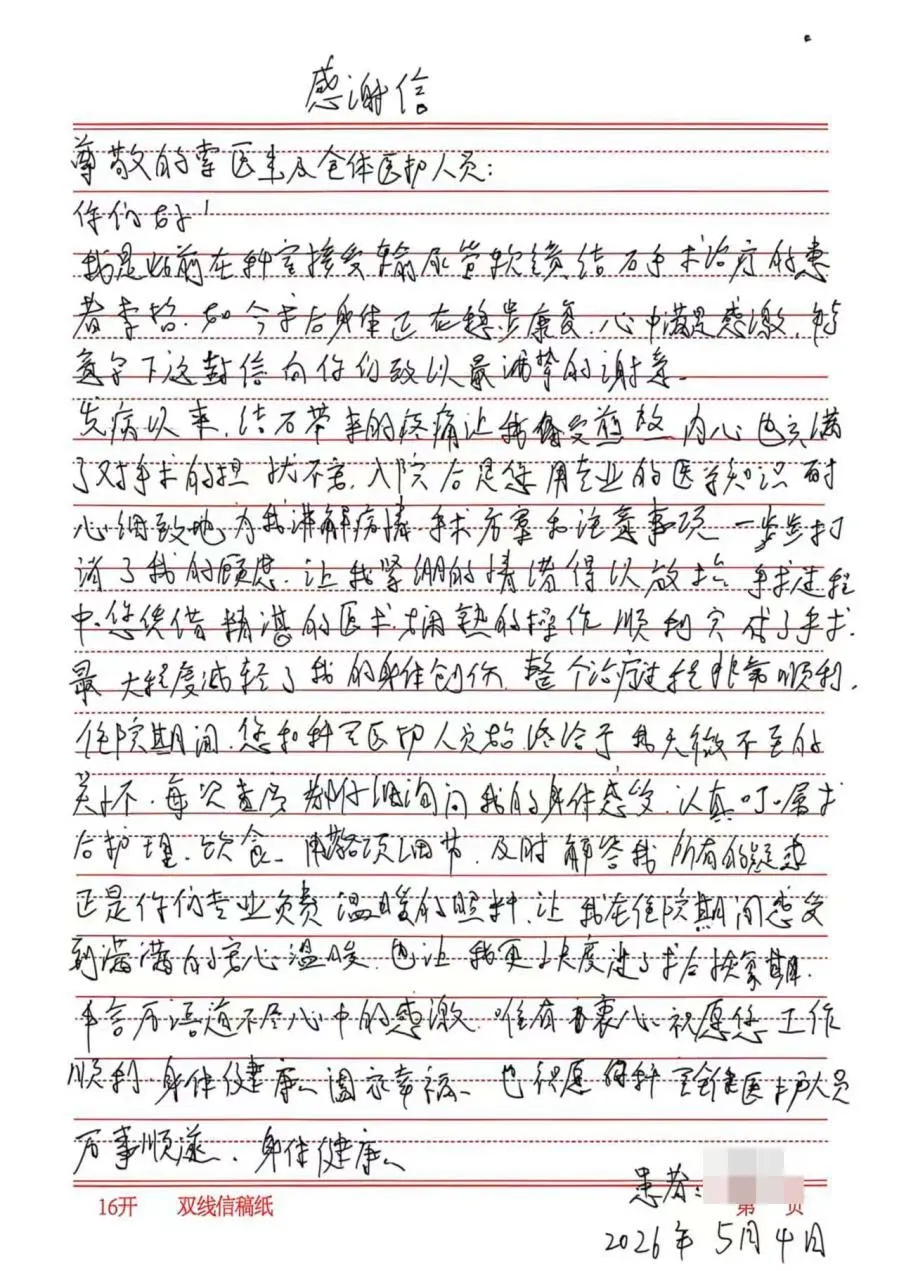 感谢信
尊敬的李医生及全体医护人员:
你们好!
我是此前在科室接受输尿管软镜结石手术治疗的患
者李 如今术后身体正在稳步康复、心中满是感激、特
意写下这封信向你们致以最诚挚的谢意。
发病以来、结石带来的疼痛让我备受煎熬 内心也充满
了对手术的担忧不安、入院后是您用专业的医学知识 耐
心细致地为我讲解病情 手术方案和注意事项 一步步打
消了我的顾虑、让我紧绷的情绪得以放松 手术过程
中、您凭借精湛的医术、娴熟的操作 顺利完成了手术、
最大程度减轻了我的身体创伤、整个治疗过程非常顺利、
住院期间、您和科室医护人员始终给予我无微不至的
关怀、每次查房都仔细询问我的身体感受、认真叮嘱术
后护理、饮食、用 项细节、及时解答我所有的疑惑
正是你们专业负责 温暖的照料、让我在住院期间感受
到满满的安心温暖、也让我更 度过了术后 期、
千言万语道不尽心中的感激、唯有衷心祝愿您工作
顺利、身体健康、阖家幸福、也祝愿 科室全体医护人员
万事顺遂、身体健康、
患者:
2026年5月4日
16开 双线信稿纸 第 页